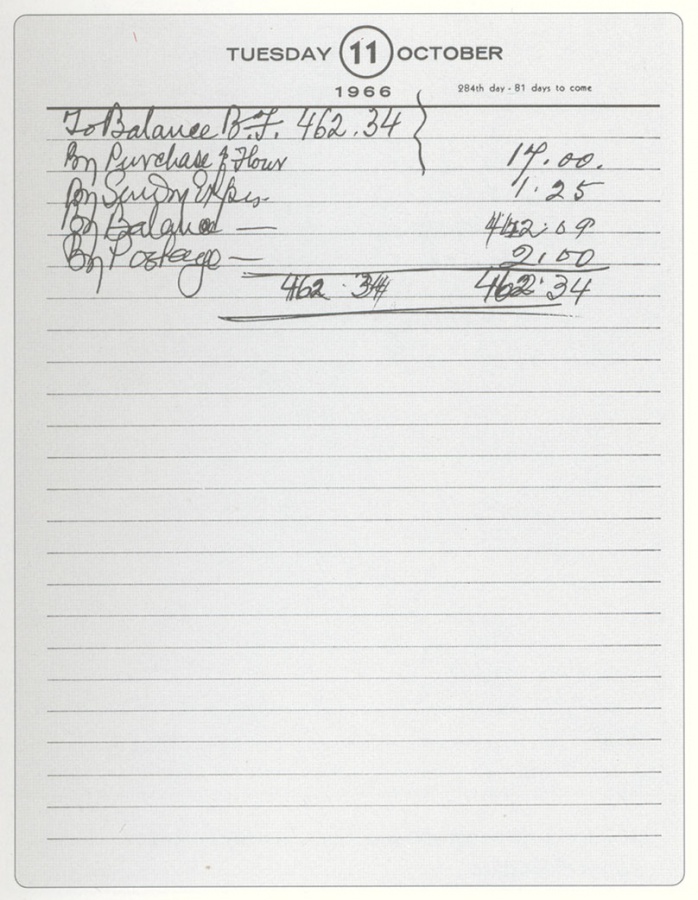 TUESDAY 11 OCTOBER
1966 284th day - 81 days to come
To Balance B.F. 462.34
By Purchase of Flour 17.00.
By Sundry Expses. 1.25
By Balance — 442.09
By Postage — 2.00
462.34 462.34